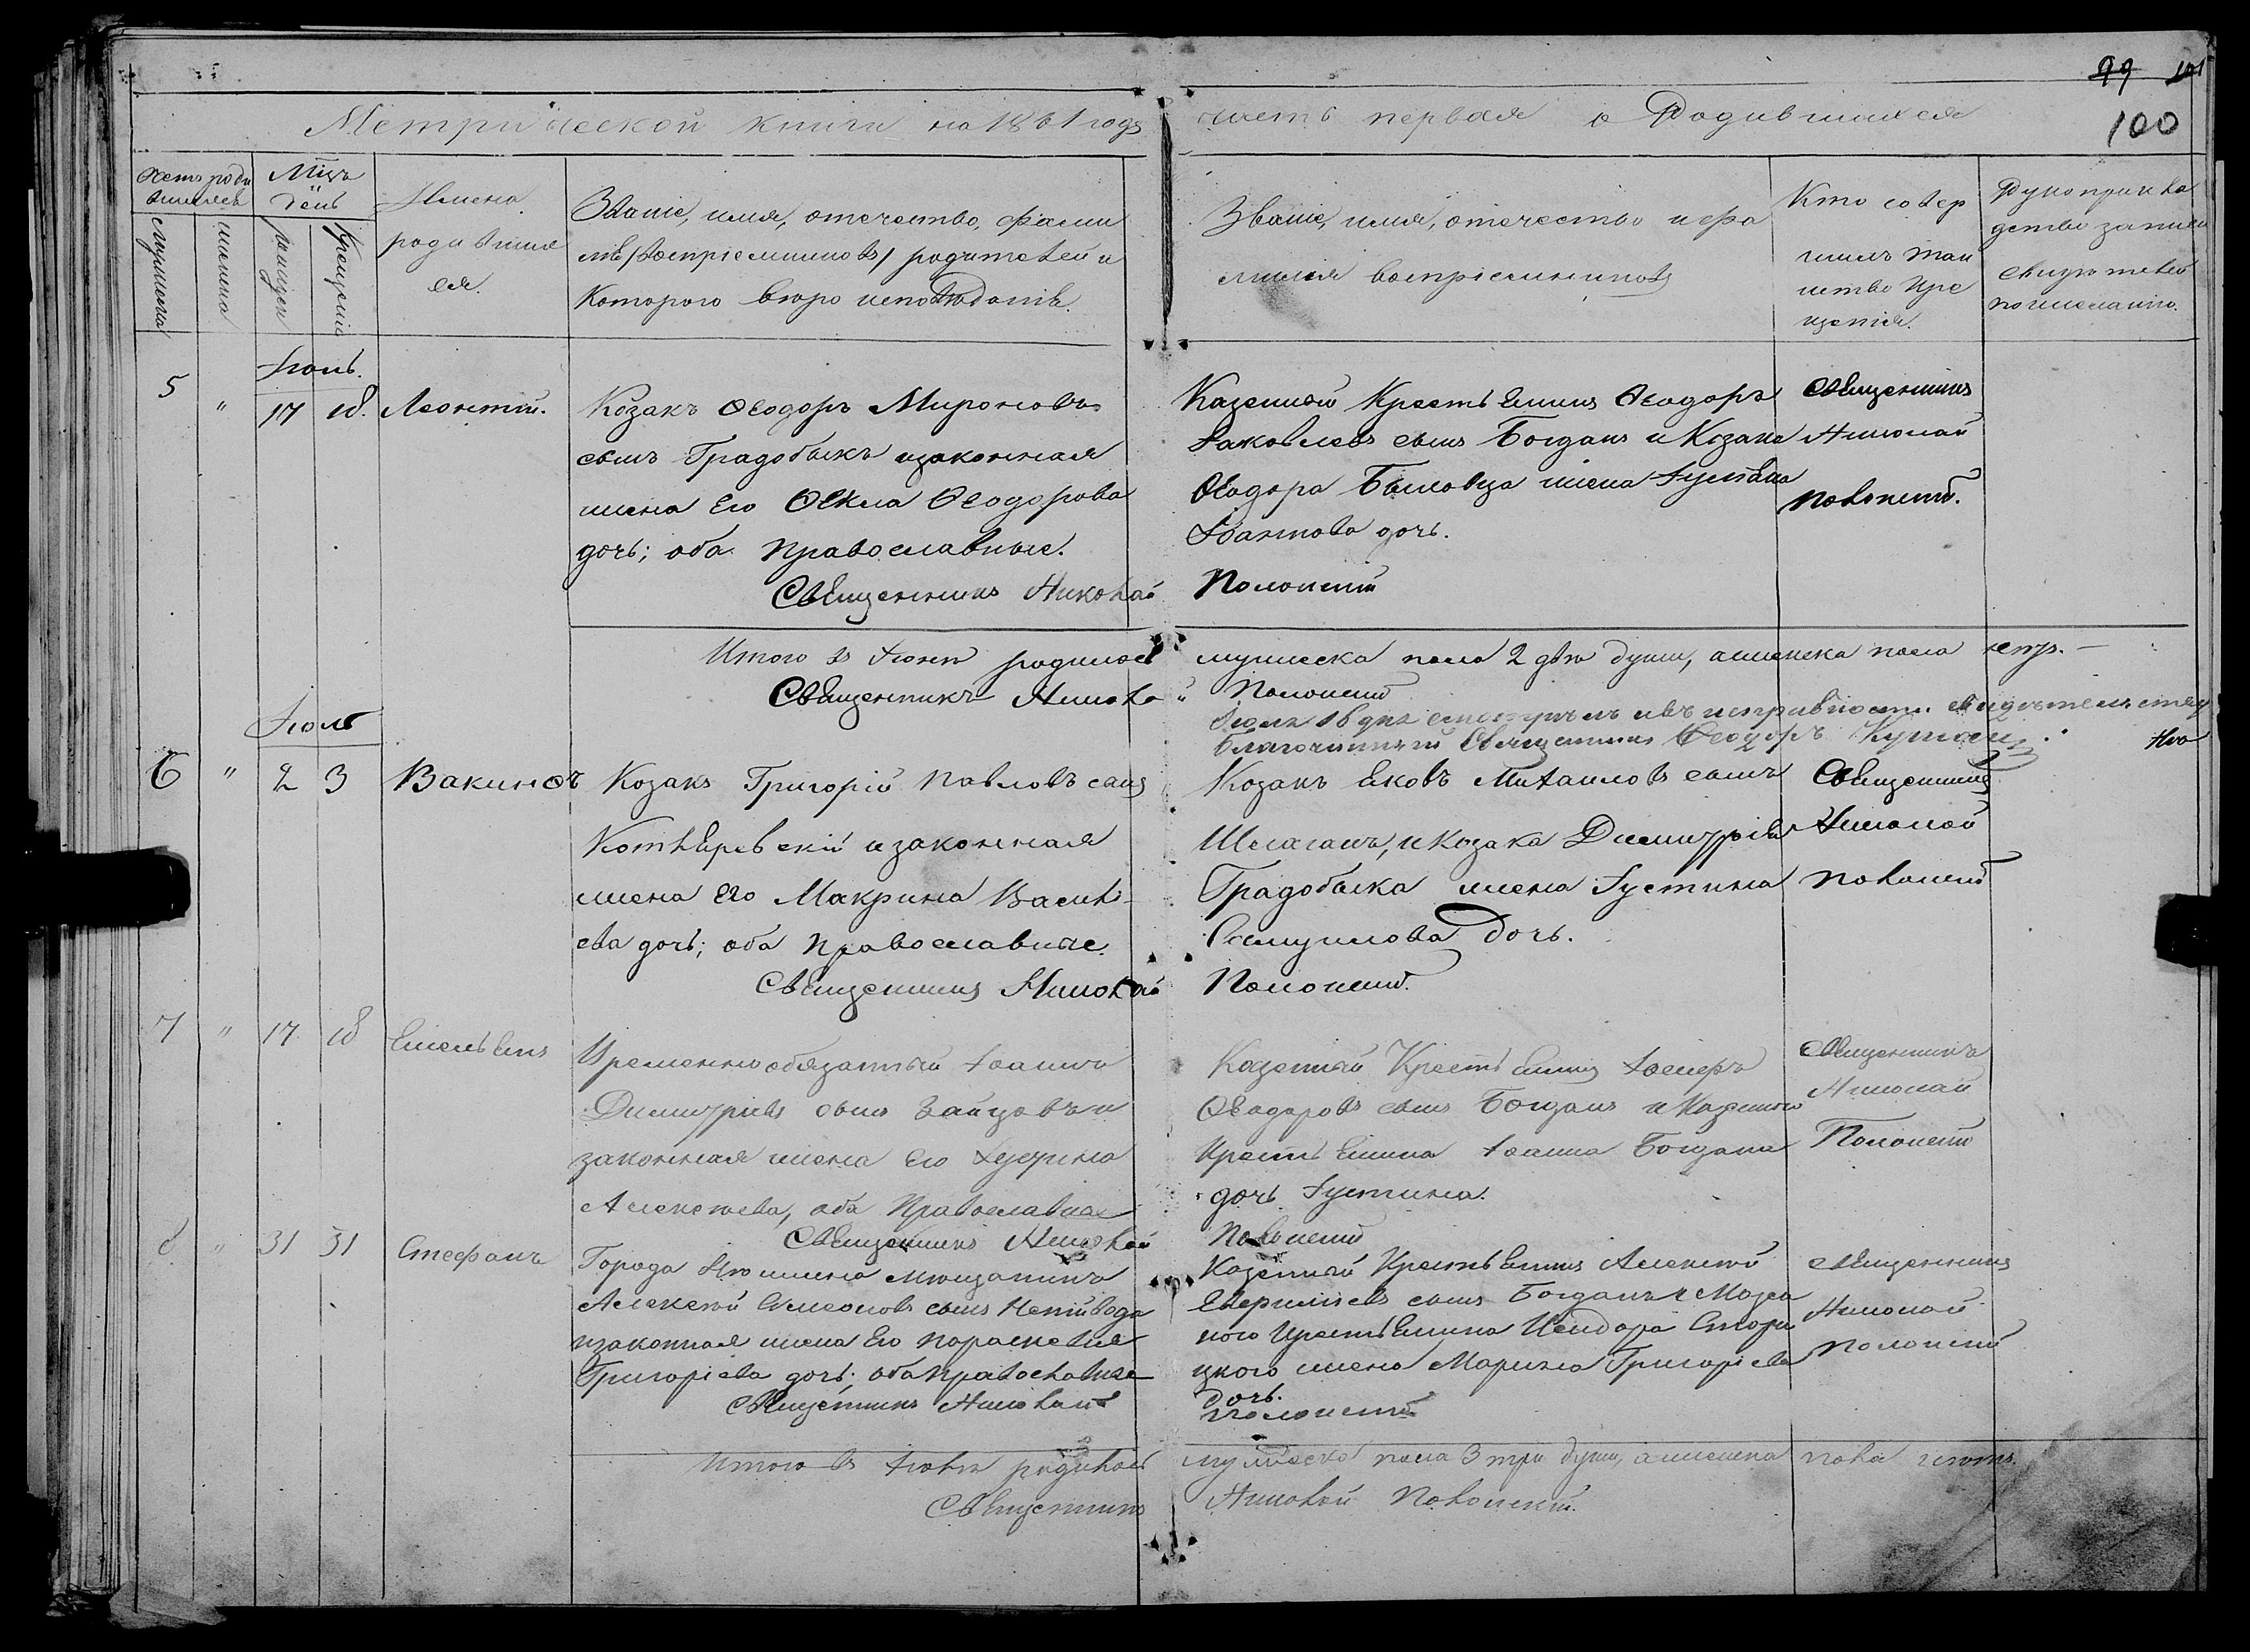 99 101
100
Метрической книги на 1861 годъ часть первая о Родившихся
Счетъ родившихся
Мцъ День
Имена родившихся.
Званіе, имя, отечество, фамилія (воспріемниковъ) родителей и
Котораго вѣроисповѣданія.
Званіе, имя, отечество и фамилія воспріемниковъ
Кто совершилъ таинство Крещенія.
Рукоприкладство записи свидѣтелей по желанію.
мужеска
женска
рожденія
Крещенія
Іюнь.
5 " 17 18. Леонтій.
Козакъ Ѳеодоръ Мироновъ
сынъ Градобыкъ изаконная
жена Его Ѳекла Ѳеодорова
дочь; оба Православные.
Священникъ Николай Полонскій
Казенной Крестьянинъ Ѳеодоръ
Яковлевъ сынъ Богданъ и Козака
Ѳеодора жена Іустина
дочь.
Священникъ
Николай
Полонскій.
Итого въ Іюнѣ родилось мужеска пола 2 двѣ души, а женска пола нетъ. —
Священникъ Николай Полонскій
Благочинный Священникъ Ѳеодоръ
Іюль
6 " 2 3 Вакинфъ
Козакъ Григорій Павловъ сынъ
Котляревскій изаконная
жена Его Макрина Василіева дочь; оба Православные.
Священникъ Николай Полонскій.
Козакъ Яковъ Михаиловъ сынъ
и Козака Димитрія
Градобыка жена Іустина
Самуилова Дочь.
Священникъ
Николай
Полонскій
7 " 17 18 Емельянъ
Временнообязанный Іоаннъ
Димитріевъ сынъ Зайцовъ и
законная жена Его
Алексѣева, оба Православные
Священникъ Николай Полонскій
Казенный Крестьянинъ
Ѳеодоровъ сынъ Богданъ и Казеннаго
Крестьянина Іоанна Богдана
дочь Іустина.
Священникъ
Николай
Полонскій
8 " 31 31 Стефанъ
Города мѣщанинъ
Алексѣй Симеоновъ сынъ Непийвода
изаконная жена Его Параскевія
Григоріева дочь; оба православные
Священникъ Николай Полонскій
Казенный Крестьянинъ Алексѣй
сынъ Богданъ и
Крестьянина Исидора
жена Марина Григоріева
дочь.
Священникъ
Николай
Полонскій
Итого въ Іюлѣ родилось мужеска пола 3 три души, а женска пола нетъ.
Священникъ Николай Полонскій.